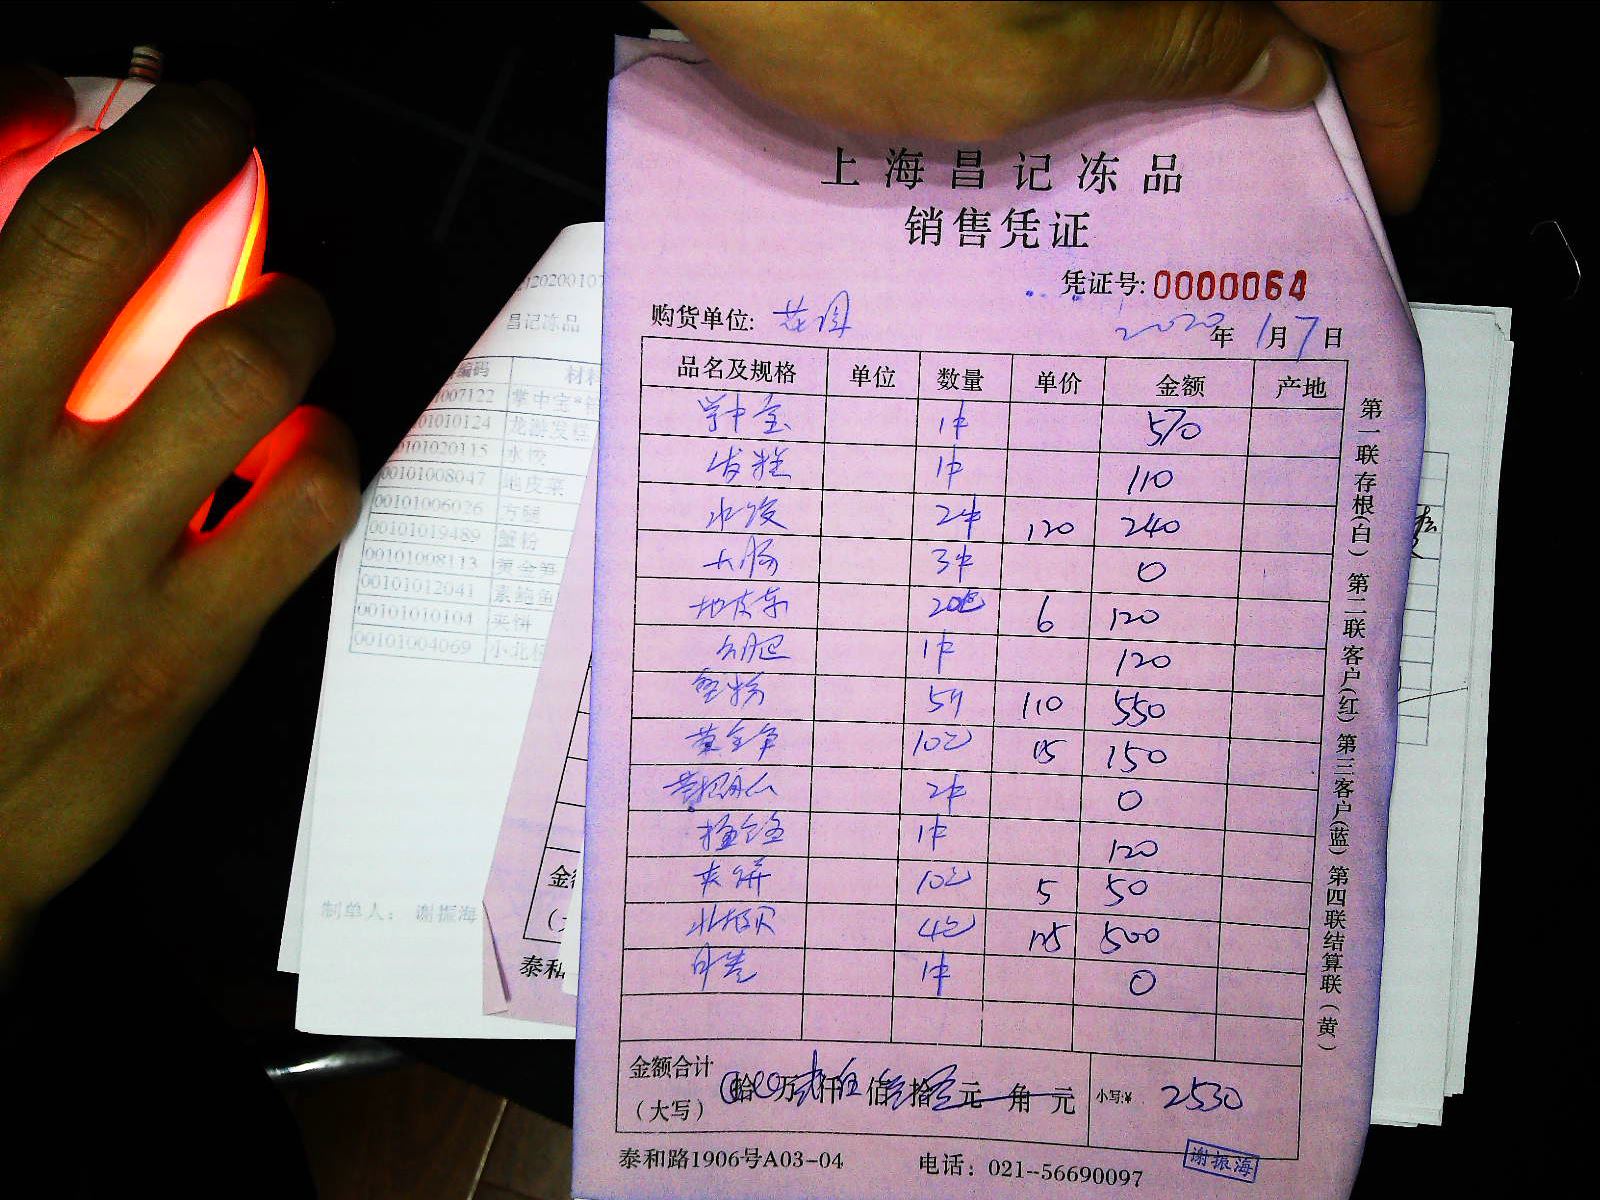 上海昌记冻品
销售凭证
凭证号: 0000064
购货单位: 花园
2020年 1月 7日
品名及规格 单位 数量 单价 金额 产地
掌中宝 1件 570
发糕 1件 110
水饺 2件 120 240
大肠 3件 0
地皮菜 20包 6 120
1件 120
蟹粉 5斤 110 550
黄金笋 10包 15 150
2件 0
1件 120
夹饼 10包 5 50
北极贝 4包 125 500
1件 0
金额合计
(大写) 拾 万 仟 佰 拾 元 角 元 小写:¥ 2530
泰和路1906号A03-04 电话: 021--56690097
谢振海
第一联存根(白) 第二联客户(红) 第三客户(蓝) 第四联结算联(黄)
20200107
昌记冻品
编码 材料
007122 掌中宝
01010124 龙游发糕
0101020115 水饺
00101008047 地皮菜
00101006026 方腿
00101019489 蟹粉
00101008113 黄金笋
00101012041 素鲍鱼
00101010104 夹饼
00101004069 小北极
制单人: 谢振海
金
泰和